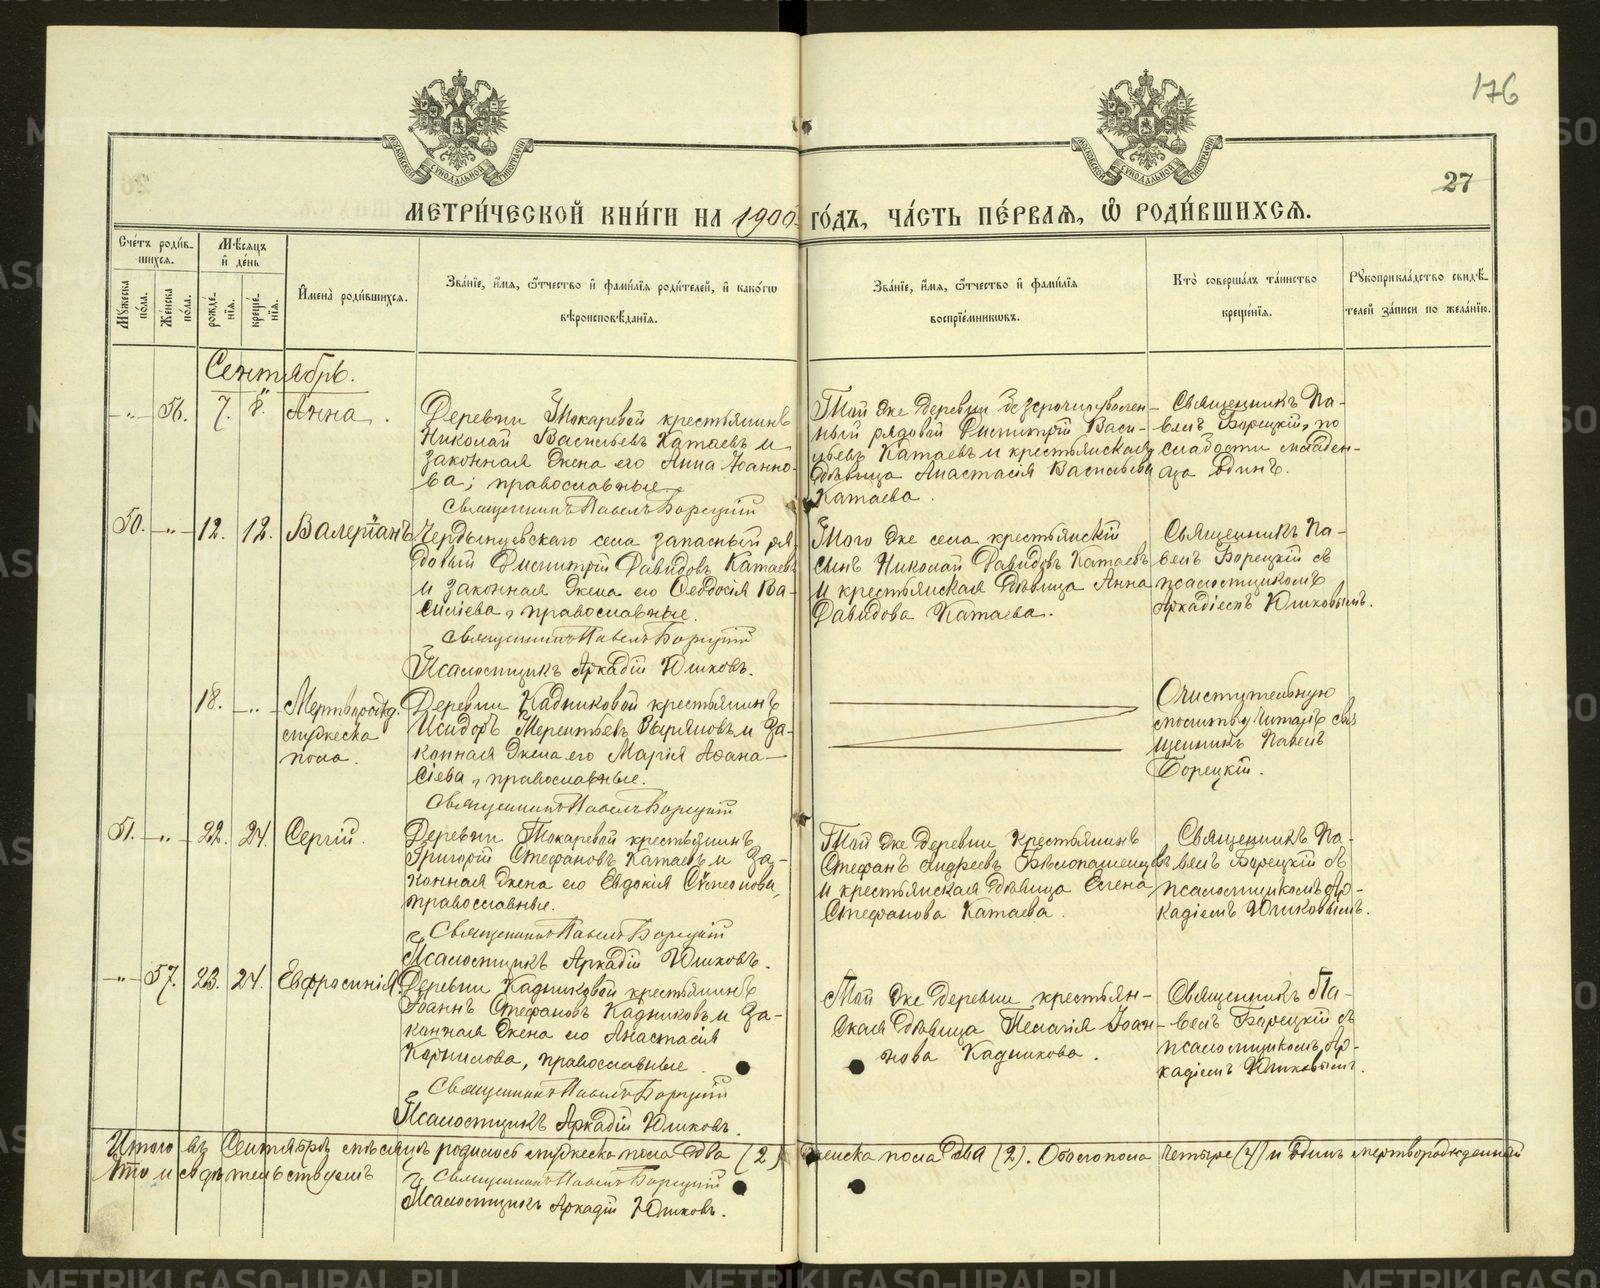 176
27
МЕТРИ́ЧЕСКОЙ КНИ́ГИ НА 1900 ГО́ДЪ, ЧА́СТЬ ПЕ́РВАЯ, Ѡ҆ РОДИ́ВШИХСЯ.
Сче́тъ роди́в-
шихся.
Мѣ́сяцъ
и҆ де́нь
Мꙋ́жеска
по́ла.
Же́нска
по́ла.
рожде́-
нїя.
креще́-
нїя.
И҆мена̀ роди́вшихся.
Зва́нїе, и҆́мя, ѻ҆́тчество и҆ фами́лїя роди́телей, и҆ како́гѡ
вѣроисповѣ́данїя.
Зва́нїе, и҆́мя, ѻ҆́тчество и҆ фами́лїя
воспрїе́мникѡвъ.
Кто̀ соверша́лъ та́инство
креще́нїя.
Рꙋкоприкла́дство свидѣ́-
телей за́писи по жела́нїю.
Сентябрь.
-"- 56. 7. 8. Анна.
Деревни Токаревой крестьянинъ
Николай Васильевъ Катаевъ и
законная жена его Анна Іоанно-
ва; православные.
Священникъ Павелъ Борецкій
Той же деревни безсрочноуволен-
ный рядовой Димитрій Васи-
льевъ Катаевъ и крестьянская
дѣвица Анастасія Васильева
Катаева.
Священникъ Па-
велъ Борецкій, по
слабости младен-
ца одинъ.
50. -"- 12. 12. Валеріанъ
Чердынцевскаго села запасный ря-
довой Димитрій Давидовъ Катаевъ
и законная жена его Феодосія Ва-
силіева, православные.
Священникъ Павелъ Борецкій
Псаломщикъ Аркадій Юшковъ.
Того же села крестьянскій
сынъ Николай Давидовъ Катаевъ
и крестьянская дѣвица Анна
Давидова Катаева.
Священникъ Па-
велъ Борецкій съ
псаломщикомъ
Аркадіемъ Юшковымъ.
18. -"- Мертворожд.
мужеска
пола.
Деревни Кадниковой крестьянинъ
Исидоръ Терентьевъ Выряновъ и за-
конная жена его Марія Аѳана-
сіева, православные.
Священникъ Павелъ Борецкій
Очистительную
молитву читалъ свя
щенникъ Павелъ
Борецкій.
51. -"- 22. 24. Сергій.
Деревни Токаревой крестьянинъ
Григорій Стефановъ Катаевъ и за-
конная жена его Евдокія Сѵмеонова,
православные.
Священникъ Павелъ Борецкій
Псаломщикъ Аркадій Юшковъ.
Той же деревни крестьянинъ
Стефанъ Андреевъ Бѣлопашенцевъ
и крестьянская дѣвица Елена
Стефанова Катаева.
Священникъ Па-
велъ Борецкій съ
псаломщикомъ Ар-
кадіемъ Юшковымъ.
-"- 57. 23. 24. Евфросинія.
Деревни Кадниковой крестьянинъ
Іоаннъ Стефановъ Кадниковъ и за-
конная жена его Анастасія
Корнилова, православные.
Священникъ Павелъ Борецкій
Псаломщикъ Аркадій Юшковъ.
Той же деревни крестьян-
ская дѣвица Пелагія Іоан-
нова Кадникова.
Священникъ Па-
велъ Борецкій съ
псаломщикомъ Ар-
кадіемъ Юшковымъ.
Итого въ Сентябрѣ мѣсяцѣ родилось мужеска пола два (2) женска пола два (2). Обоего пола четыре (4) и одинъ мертворожденный
Что и свидѣтельствуемъ
Священникъ Павелъ Борецкій
Псаломщикъ Аркадій Юшковъ.
METRIKI.GASO-URAL.RU